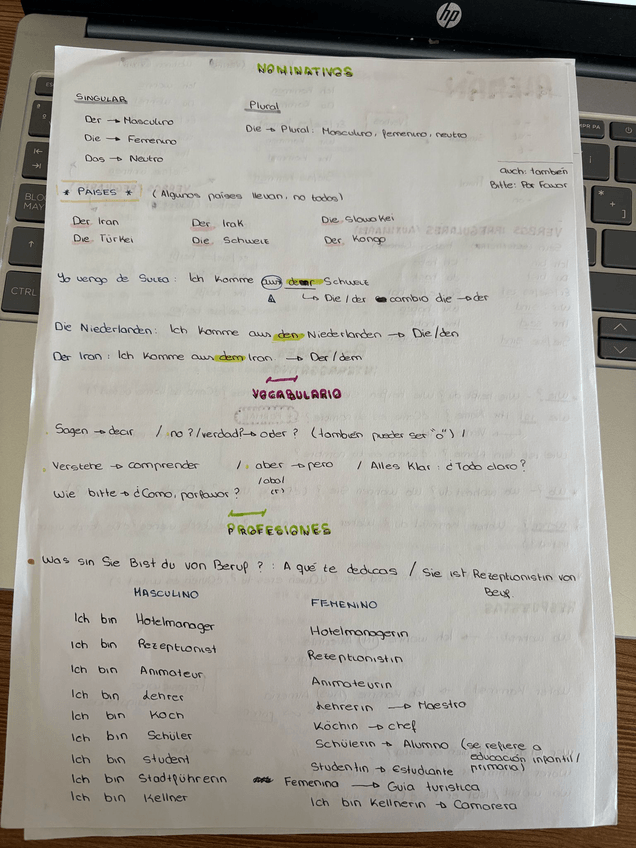 hp
NOMINATIVOS
SINGULAR
Der → Masculino
Die → Femenino
Das → Neutro
Plural
Die → Plural: Masculino, femenino, neutro
auch: también
Bitte: Por Favor
* PAISES * (Algunos países llevan, no todos)
Der Iran Der Irak Die Slowakei
Die Türkei Die Schweiz Der Kongo
Yo vengo de Suiza: Ich komme aus der Schweiz
↳ Die/der cambio die → der
Die Niederlanden: Ich komme aus den Niederlanden → Die/den
Der Iran: Ich komme aus dem Iran → Der/dem
VOCABULARIO
Sagen → decir / no?/verdad? → oder? (también puede ser "o") /
Verstehe → comprender / aber → pero / Alles klar: ¿Todo claro?
/aba/
(r)
Wie bitte → ¿Como, por favor?
PROFESIONES
Was sin Sie Bist du von Beruf?: A qué te dedicas / Sie ist Rezeptionistin von
Beruf.
MASCULINO FEMENINO
Ich bin Hotelmanager Hotelmanagerin
Ich bin Rezeptionist Rezeptionistin
Ich bin Animateur Animateurin
Ich bin Lehrer Lehrerin → Maestro
Ich bin Koch Köchin → chef
Ich bin Schüler Schülerin → Alumno (se refiere a
educación infantil/
primaria)
Ich bin Student Studentin → Estudiante
Ich bin Stadtführerin Femenina → Guia turistica
Ich bin Kellner Ich bin Kellnerin → Camarera